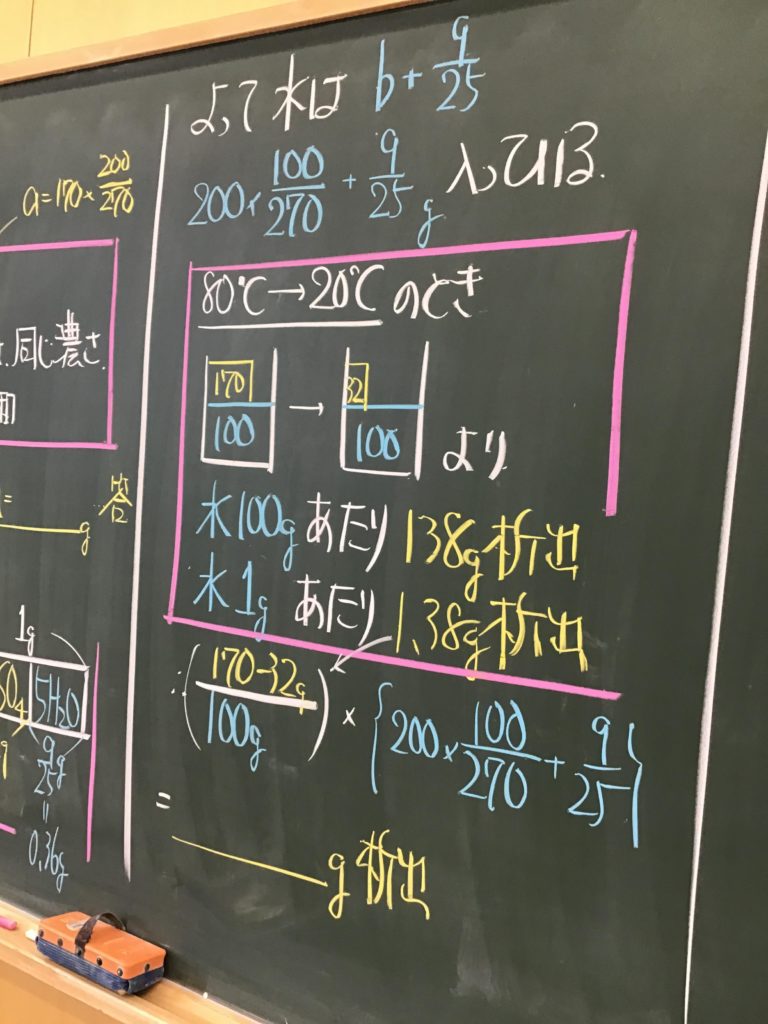 a=170×200/270
同じ濃さ
=
g 答
1g
SO4 5H2O
9/25 g
=
0.36g
よって 水は b+9/25
200×100/270+9/25 g 入っている.
80℃→20℃のとき
170 → 32
100 100 より
水100gあたり 138g析出
水1gあたり 1.38g析出
∴(170-32g/100g)×{200×100/270+9/25}
=
g 析出